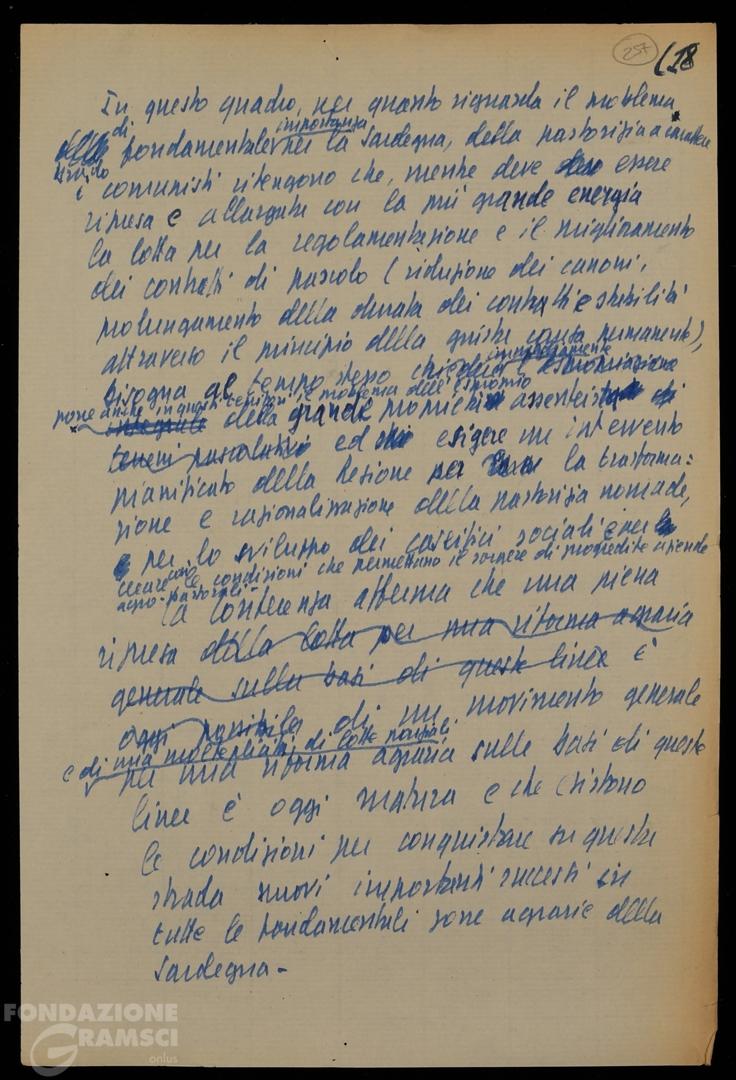 257
(18
In questo quadro, per quanto riguarda il problema
di fondamentale importanza per la Sardegna, della pastorizia a carattere
brado i comunisti ritengono che, mentre deve essere
ripresa e allargata con la più grande energia
la lotta per la regolamentazione e il miglioramento
dei contratti di pascolo (riduzione dei canoni,
prolungamento della durata dei contratti e stabilità
attraverso il principio della giusta causa permanente),
bisogna al tempo stesso
porre anche in questi termini il problema dell'esproprio
della grande proprietà assenteista
terreni pascolativi ed esigere un intervento
pianificato della Regione per la trasforma=
zione e razionalizzazione della pastorizia nomade,
e per lo sviluppo dei caseifici sociali e per
creare così le condizioni che permettano il sorgere di progredite aziende
agro-pastorali.
La Conferenza afferma che una piena
ripresa della lotta per una riforma agraria
generale sulla basi di queste linee è
oggi possibile, di un movimento generale
e di una molteplicità di lotte parziali
per una riforma agraria sulle basi di queste
linee è oggi matura e che esistono
le condizioni per conquistare su questa
strada nuovi importanti successi in
tutte le fondamentali zone agrarie della
Sardegna -
FONDAZIONE
GRAMSCI
onlus